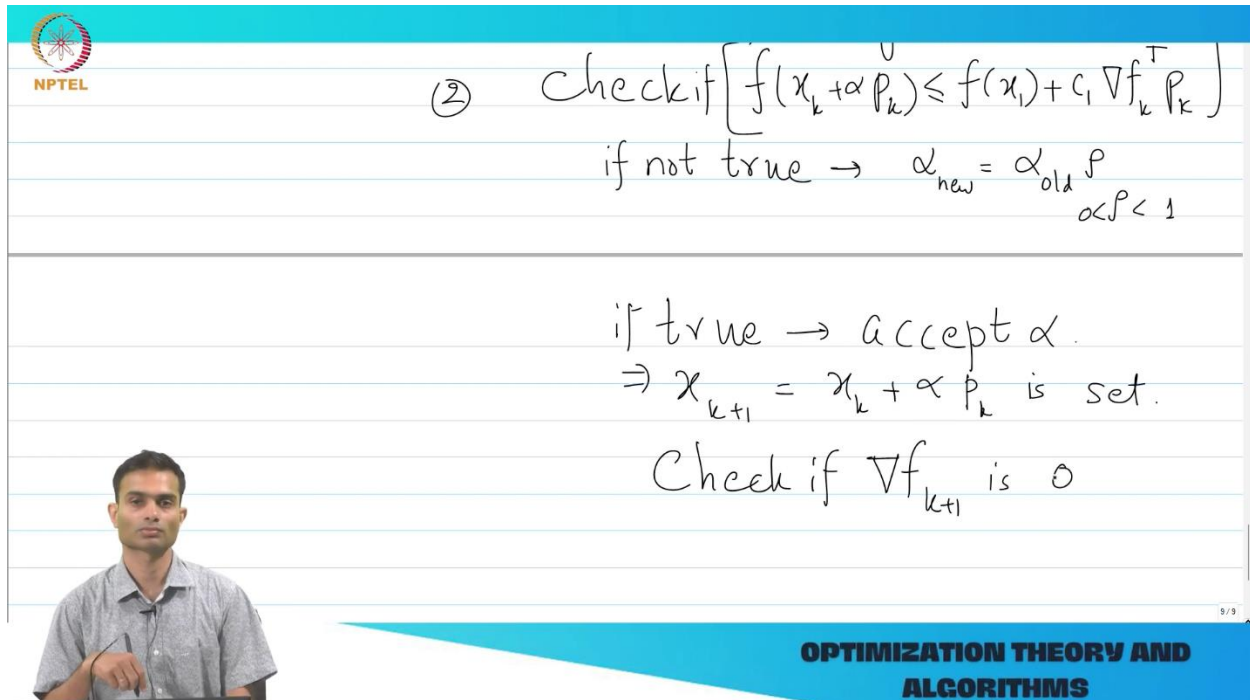 NPTEL
② Check if [f(x_k + α p_k) ≤ f(x_1) + c_1 ∇f_k^T p_k]
if not true → α_new = α_old ρ
0<ρ<1
if true → accept α.
⇒ x_{k+1} = x_k + α p_k is set.
Check if ∇f_{k+1} is 0
9/9
OPTIMIZATION THEORY AND
ALGORITHMS